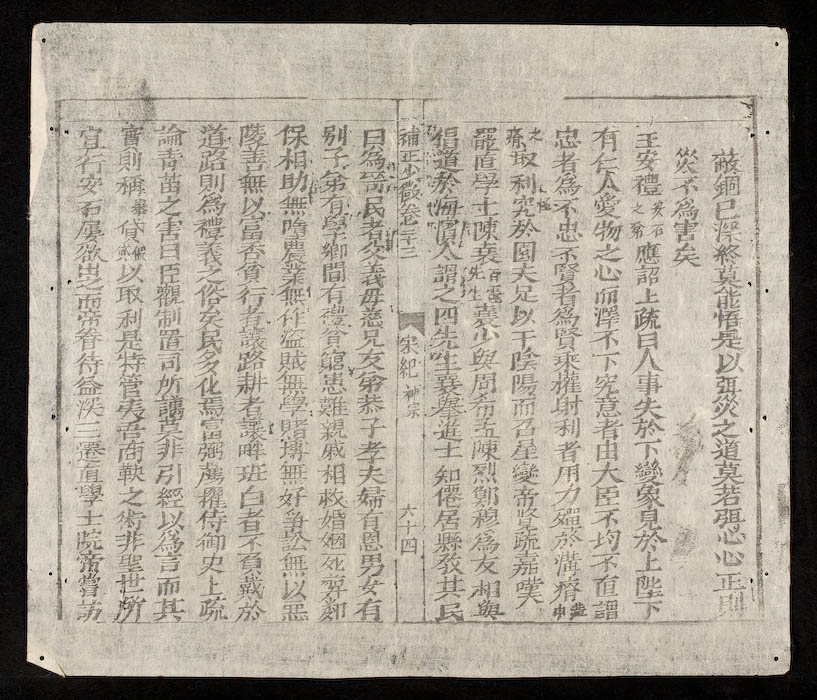 蔽錮已深終莫能悟是以弭災之道莫若弭心心正則
災不為害矣
王安禮安石之弟應詔上疏曰人事失於下變象見於上陛下
有仁人愛物之心而澤不下究意者由大臣不均不直謂
忠者為不忠不賢者為賢乘權射利者用力殫於溝瘠
取利究於園夫足以干陰陽而召星變帝覽疏嘉嘆
罷直學士陳襄先生襄少與周希孟陳烈鄭穆為友相與
倡道於海濱人謂之四先生襄舉進士知僊居縣教其民
補正少微卷二十三 宋紀 神宗 六十四
曰為吾民者父義母慈兄友弟恭子孝夫婦有恩男女有
別子弟有學鄉閭有禮貧窮患難親戚相救婚姻死葬鄰
保相助無墮農業無作盜賊無學賭博無好爭訟無以惡
陵善無以富吞貧行者讓路耕者讓畔班白者不負戴於
道路則為禮義之俗矣民多化焉富弼薦擢侍御史上疏
論青苗之害曰臣觀制置司所議莫非引經以為言而其
實則稱貸以取利是特管夷吾商鞅之術非聖世所
宜行安石屢欲出之而帝眷待益深三遷直學士院帝嘗訪